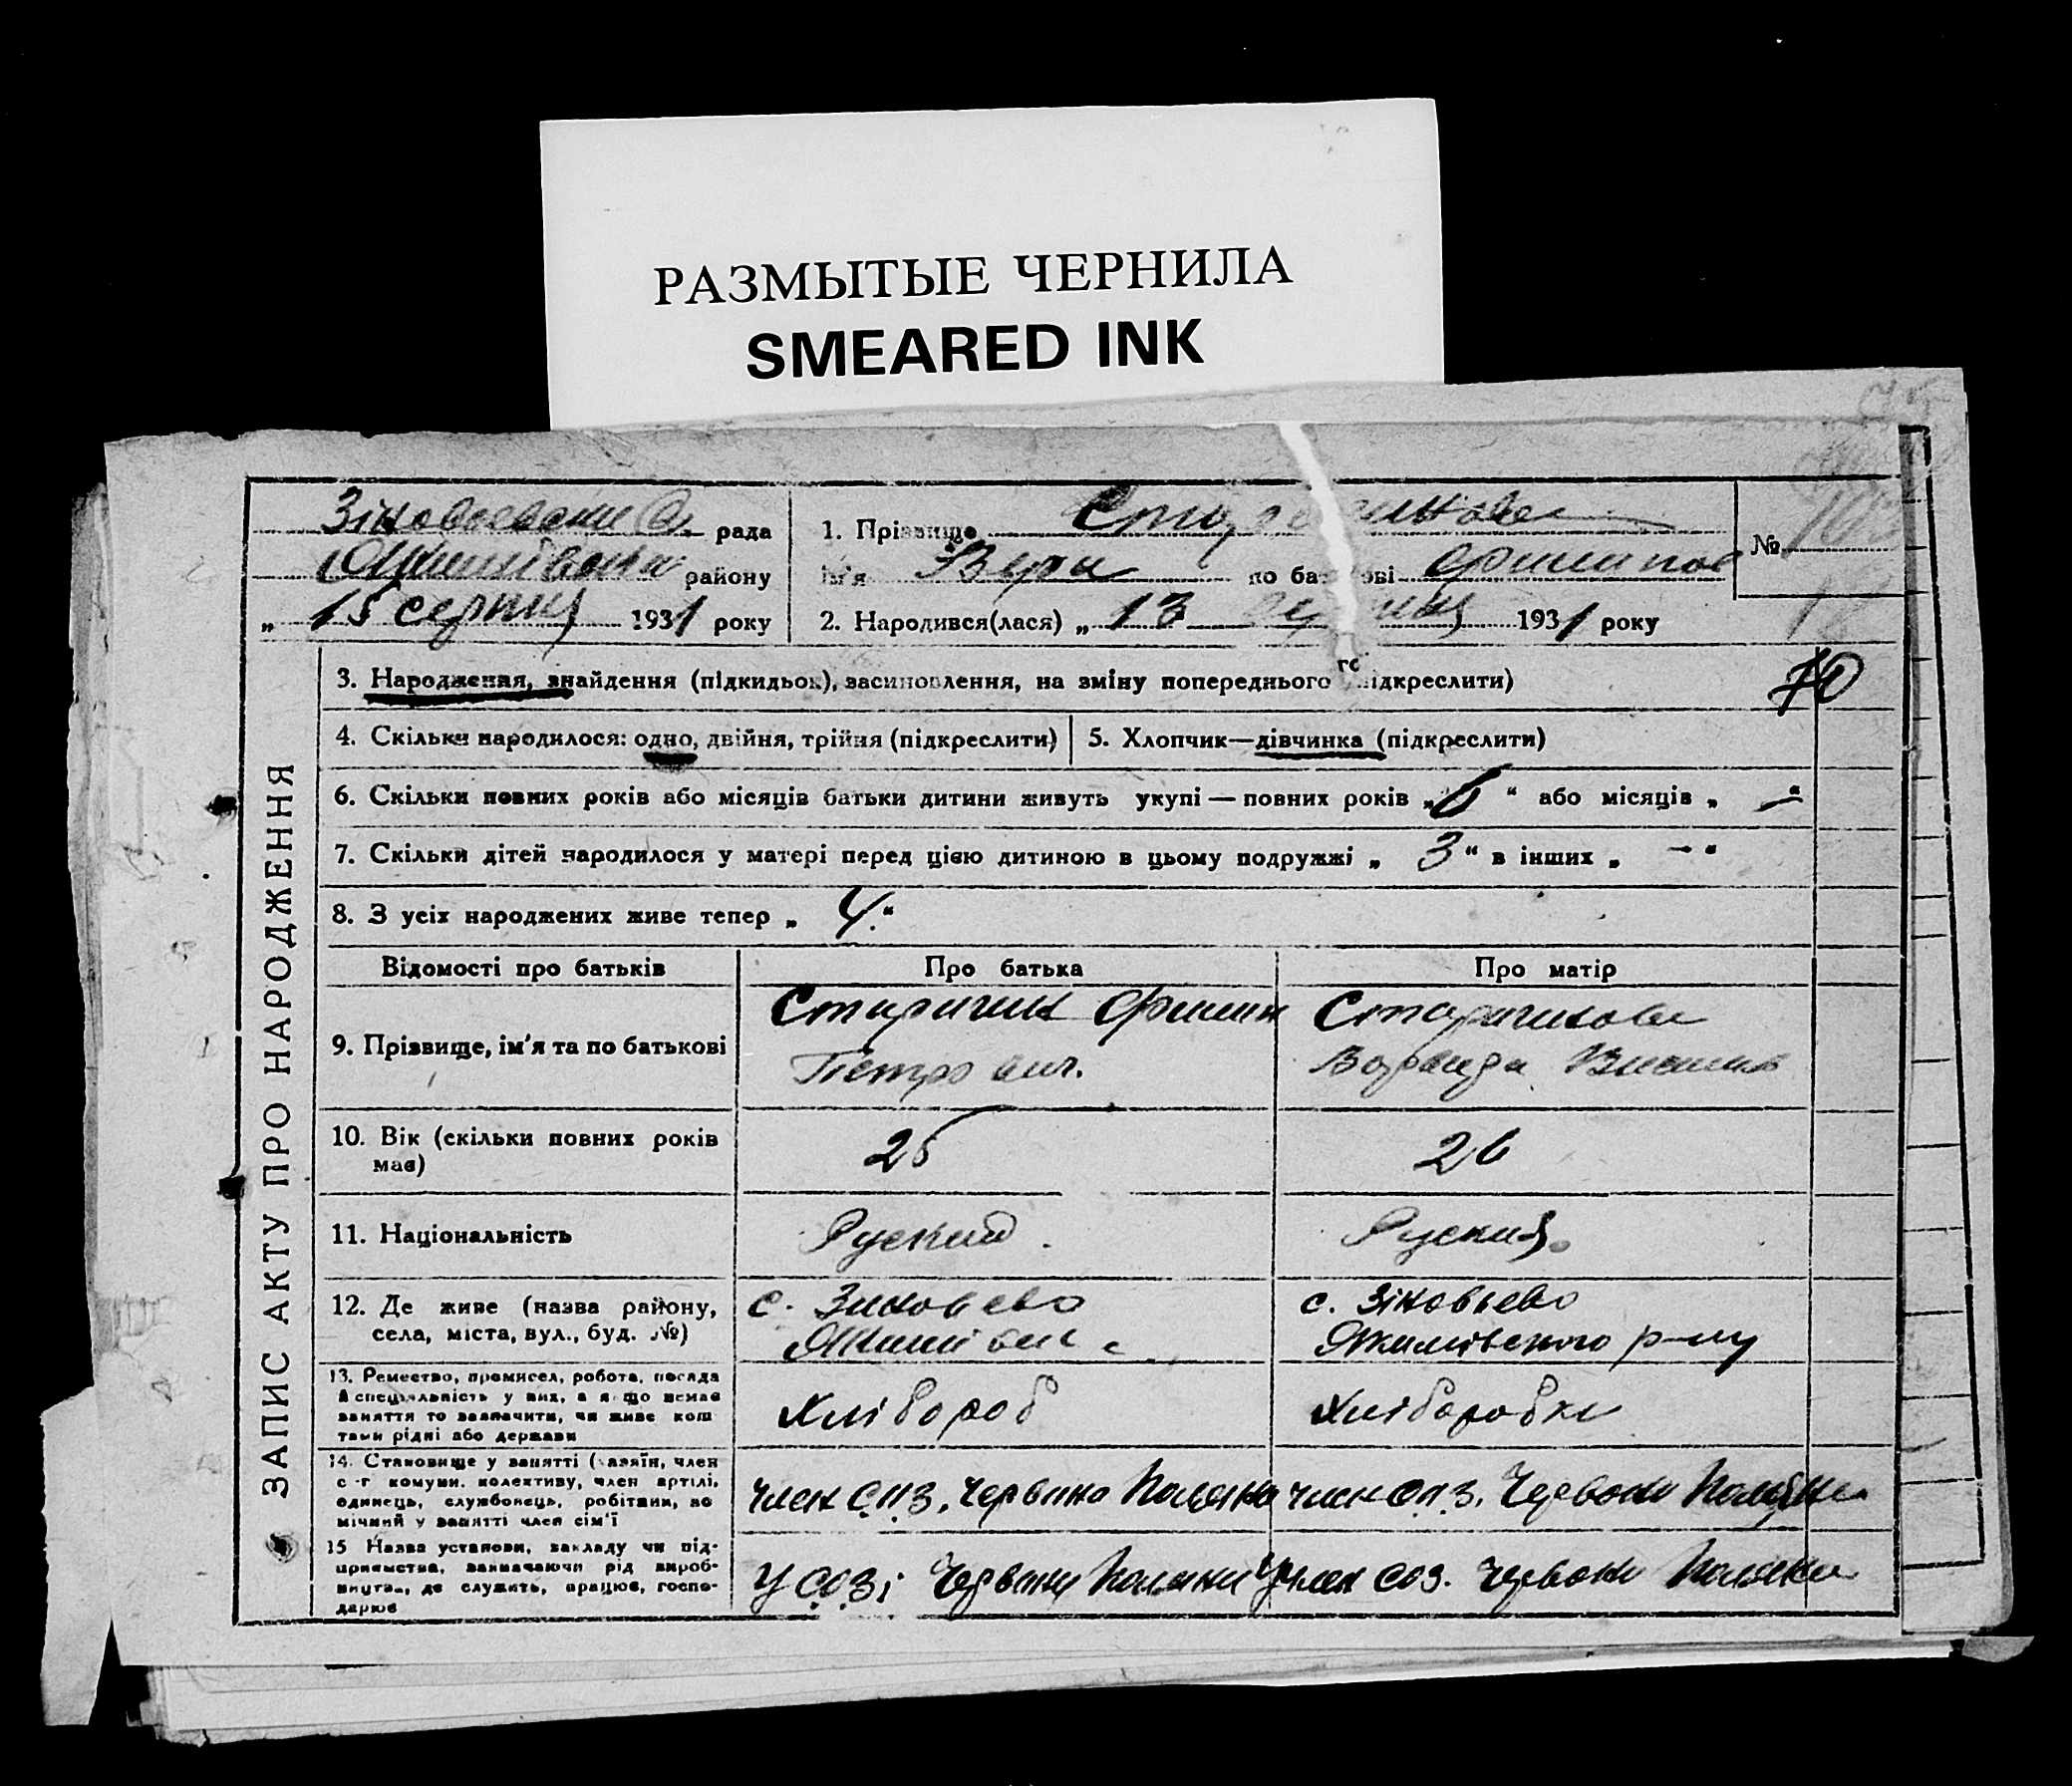 РАЗМЫТЫЕ ЧЕРНИЛА
SMEARED INK
рада
району
„ 15 серпня 1931 року
1. Прізвище
ім'я Вера по батькові Филипов
2. Народився(лася) „ 13 серпня 1931 року
№
ЗАПИС АКТУ ПРО НАРОДЖЕННЯ
3. Народження, знайдення (підкидьок), засиновлення, на зміну попереднього (підкреслити)
70
4. Скільки народилося: одно, двійня, трійня (підкреслити)
5. Хлопчик—дівчинка (підкреслити)
6. Скільки повних років або місяців батьки дитини живуть укупі — повних років „ 6 “ або місяців „ — “
7. Скільки дітей народилося у матері перед цією дитиною в цьому подружжі „ 3 “ в інших „ — “
8. З усіх народжених живе тепер „ 4 “
Відомості про батьків
Про батька
Про матір
9. Прізвище, ім'я та по батькові
Старичин Филип
Петрович.
Старичинова
10. Вік (скільки повних років
має)
25
26
11. Національність
Руский.
Руская.
12. Де живе (назва району,
села, міста, вул., буд. №)
с. Зиновьево
с. Зіновьево
Якимівського р-ну
13. Ремество, промисел, робота, посада
й спеціяльність у них, а якщо немає
заняття то зазначити, чи живе кош
тами рідні або держави
Хлібороб
Хліборобка
14. Становище у занятті (хазяїн, член
с-г комуни, колективу, член артілі,
одинець, службовець, робітник, по
мічний у занятті член сім'ї
член СОЗ. Червона Поляна
член СОЗ. Червона Поляна
15 Назва установи, закладу чи під-
приємства, зазначаючи рід вироб-
ництва, де служить, працює, госпо-
дарює
У СОЗі Червона Поляна
Член СОЗ. Червона Поляна